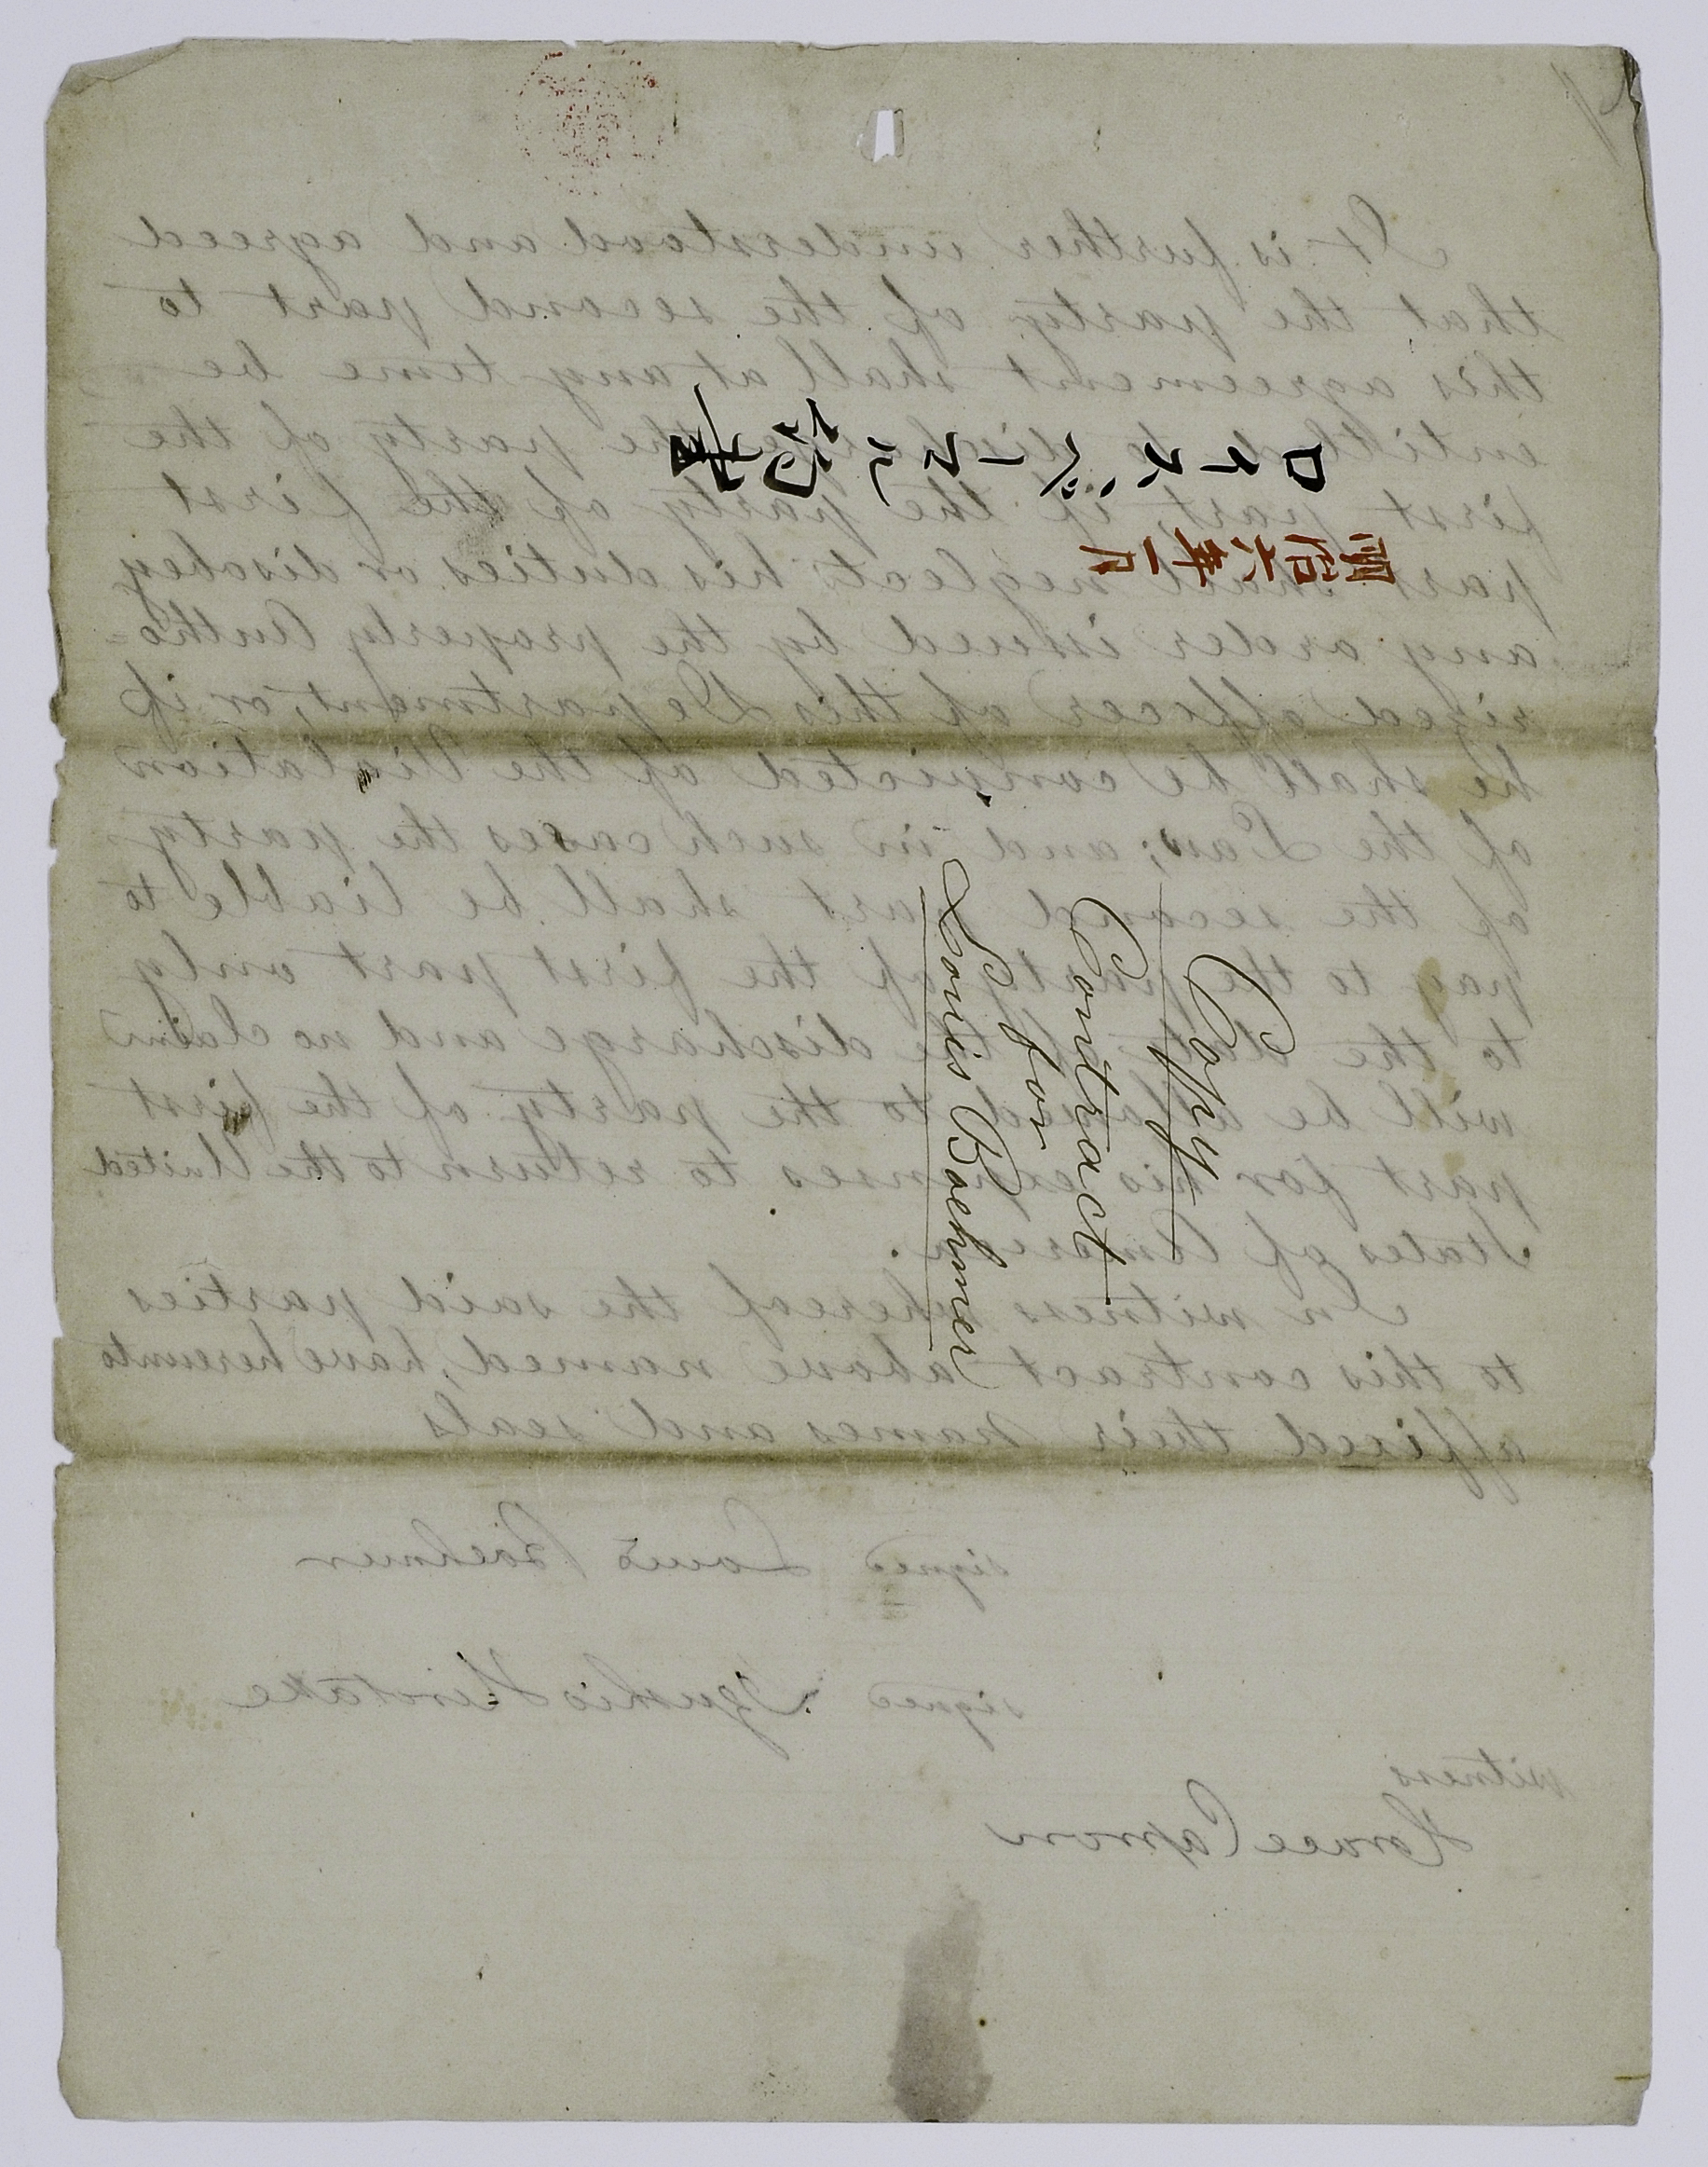 明治六年一月
Copy
Contract
for
Louis Boehmer
It is further understood and agreed
that the party of the second part to
this agreement shall at any time be
entitled to discharge the party of the
first part, if the party of the first
part shall neglect his duties or disobey
any order issued by the properly Autho-
rized officer of this Department, or if
he shall be convicted of the Violation
of the Law; and in such cases the party
of the second part shall be liable to
pay to the party of the first part only
to the date of the discharge and no claim
will be allowed to the party of the first
part for his expenses to return to the United
States of America.
In witness whereof the said parties
to this contract above named, have hereunto
affixed their names and seals
signed Louis Boehmer
signed Kirotake
witness
Horace Capron